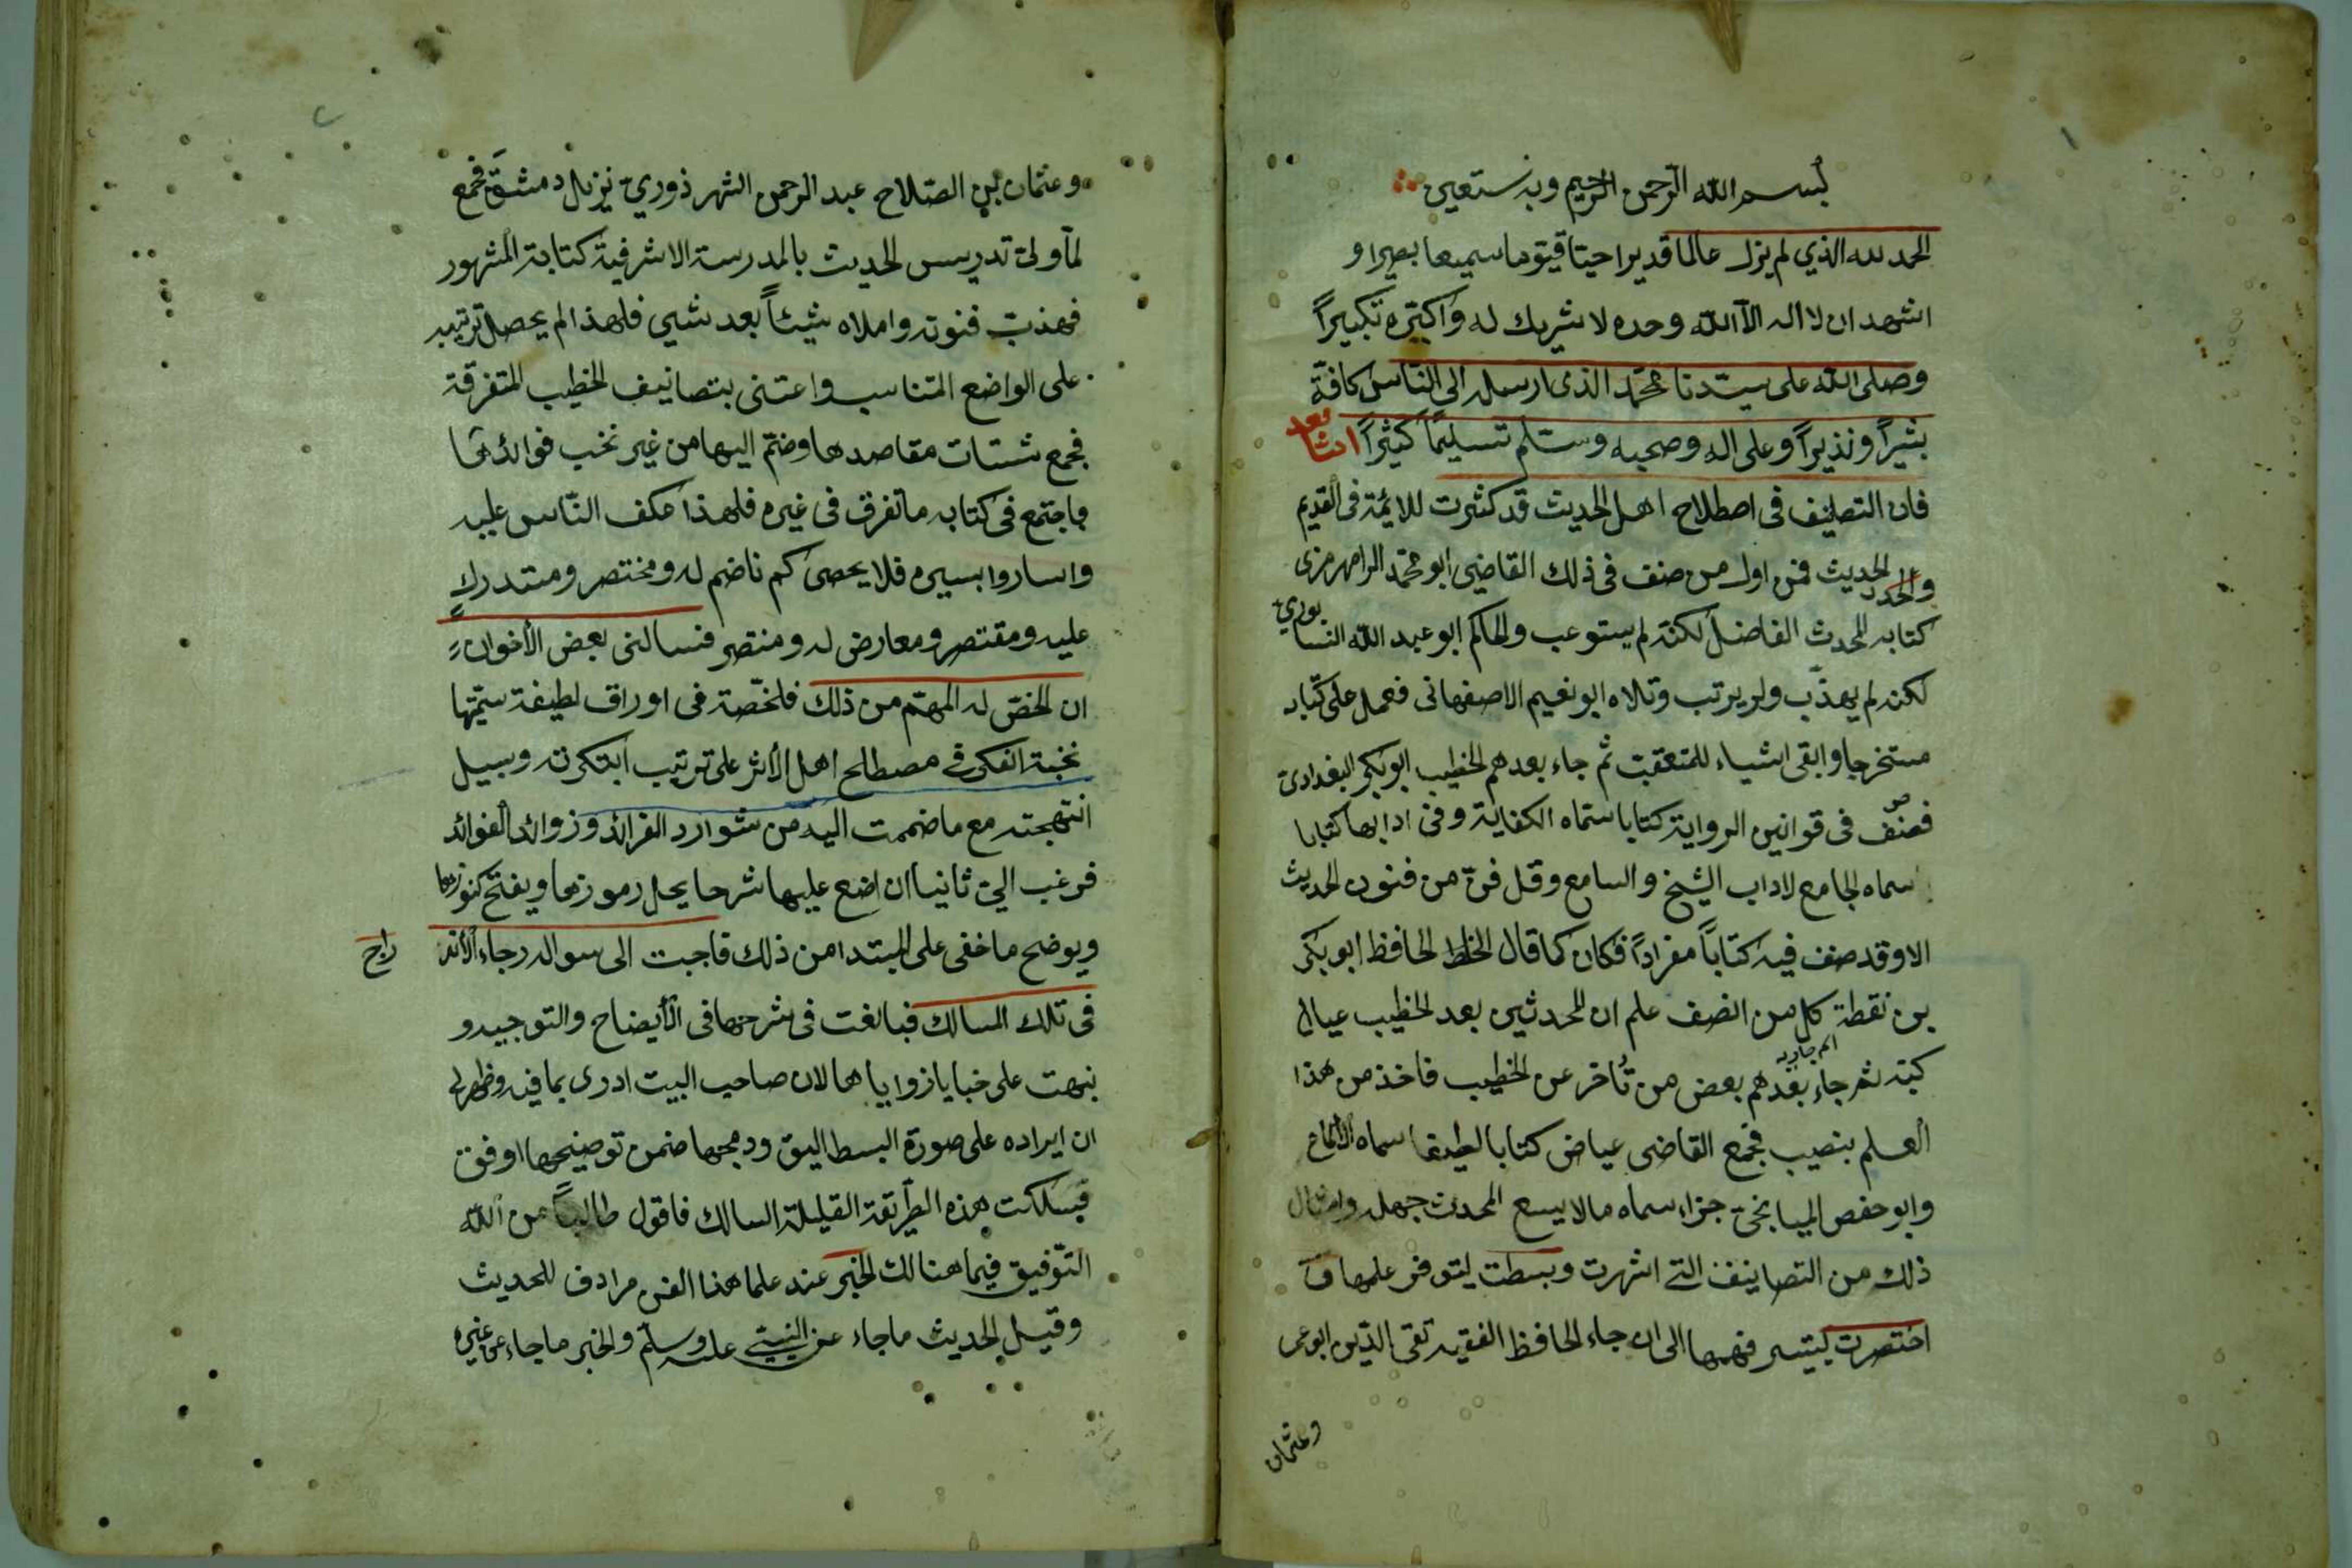 بسم الله الرحمن الرحيم وبه نستعين
الحمد لله الذي لم يزل عالما قديرا حيّا قيّوما سميعا بصيرا و
اشهد ان لا اله الا الله وحده لا شريك له واكبّره تكبيراً
وصلى الله على سيّدنا محمّد الذى ارسله الى النّاس كافّة
بشيراً ونذيراً وعلى اله وصحبه وسلّم تسليماً كثيراً امّا بعد
فان التصانيف فى اصطلاح اهل الحديث قد كثرت للائمة فى القديم
والحديث فمن اول من صنف فى ذلك القاضى ابو محمّد الرامهرمزى
كتابه المحدث الفاضل لكنّه لم يستوعب والحاكم ابو عبد الله النسابورى
لكنه لم يهذّب ولم يرتب وتلاه ابو نعيم الاصفهانى فعمل على كتابه
مستخرجا وابقى اشياء للمتعقب ثم جاء بعدهم الخطيب ابو بكر البغدادى
فصنّف فى قوانين الرواية كتابا سمّاه الكفاية وفى ادابها كتابا
سماه الجامع لاداب الشيخ والسامع وقل فنّ من فنون الحديث
الا وقد صنف فيه كتاباً مفراداً فكان كما قال الحافظ ابو بكر
بن نقطة كل من انصف علم ان المحدثين بعد الخطيب عيال
كتبه ثم جاء بعدهم بعض من تأخر عن الخطيب فاخذ من هذا
العلم بنصيب فجمع القاضى عياض كتابا لطيفا سماه الالماع
وابو حفص الميانجى جزاء سماه مالا يسع المحدث جهله وامثال
ذلك من التصانيف التى اشهرت وبسطت ليتوفر علمها و
اختصرت ليتيسر فهمها الى ان جاء الحافظ الفقيه تقى الدّين ابو عمر
وعثمان
وعثمان بن الصّلاح عبد الرحمن الشهرذورى نزيل دمشق فجمع
لمّا ولى تدريس الحديث بالمدرسة الاشرفية كتابة المشهور
فهذب فنونه واملاه شيئاً بعد شيى فلهذا لم يحصل ترتيبه
على الواضع المتناسب واعتنى بتصانيف الخطيب المتفرقة
فجمع شتات مقاصدها وضمّ اليها من غير نخب فوائدها
فاجتمع فى كتابه ما تفرق فى غيره فلهذا عكف النّاس عليه
واساروا بسيره فلا يحصى كم ناضم له ومختصر ومستدرك
عليه ومقتصر ومعارض له ومنتصر فسالنى بعض الأخوان
ان الخصّ له المهمّ من ذلك فلخّصته فى اوراق لطيفة سمّيتها
نخبة الفكر فى مصطلح اهل الأثر على ترتيب ابتكرته وسبيل
انتهجته مع ما ضممت اليه من شوارد الفرائد وزوائد الفوائد
فرغب الىّ ثانيا ان اضع عليها شرحا يحل رموزها ويفتح كنوزها
ويوضح ما خفى على المبتدا من ذلك فاجبت الى سواله رجاء الأندراج
فى تلك المسالك فبالغت فى شرحها فى الأيضاح والتوجيه و
نبهت على خبايا زواياها لان صاحب البيت ادرى بما فيه وظهر لى
ان ايراده على صورة البسط اليق ودمجها ضمن توضيحها اوفق
فسلكت هذه الطريقة القليلة السالك فاقول طالباً من الله
التّوفيق فيما هنالك الخبر عند علما هذا الفن مرادف للحديث
وقيل الحديث ما جاء عن النبى عليه وسلّم والخبر ما جاء عن غيره